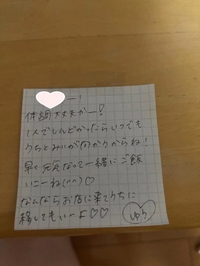 ー!
体調大丈夫かー!
1人でしんどかったらいつでも
うちとみいがおるからね!
早く元気なって一緒にご飯
いこーね(^^)♡
なんならお店に来てうちに
移してもいーよ♡♡
ゆう